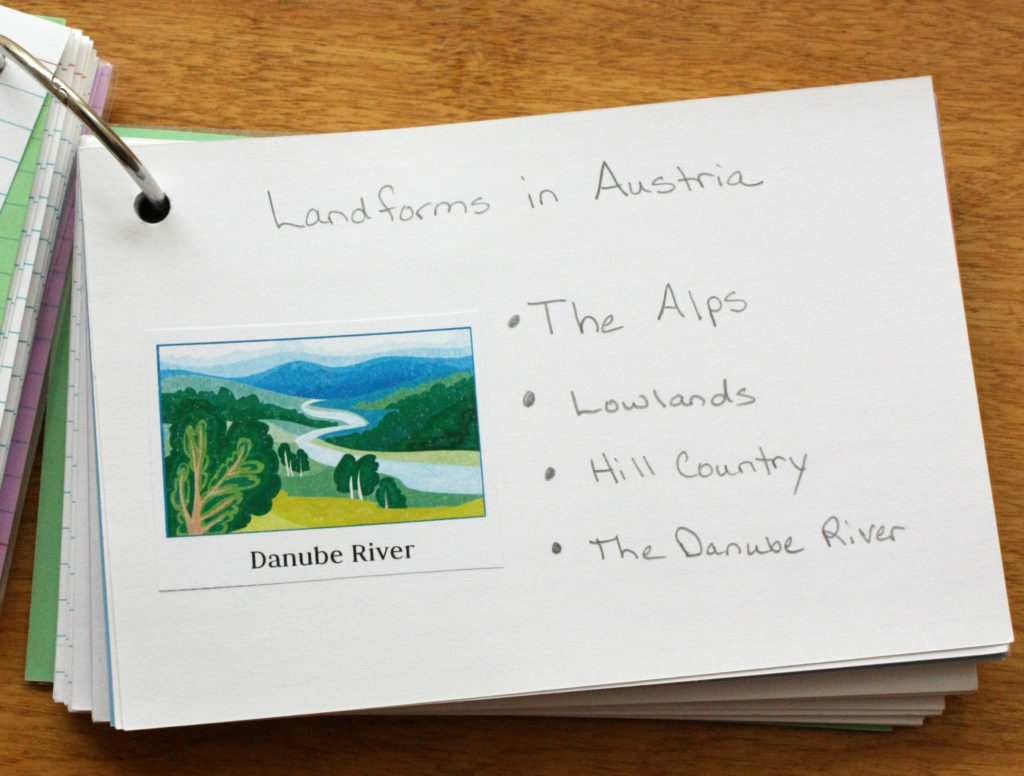 Landforms in Austria
• The Alps
• Lowlands
• Hill Country
• The Danube River
Danube River